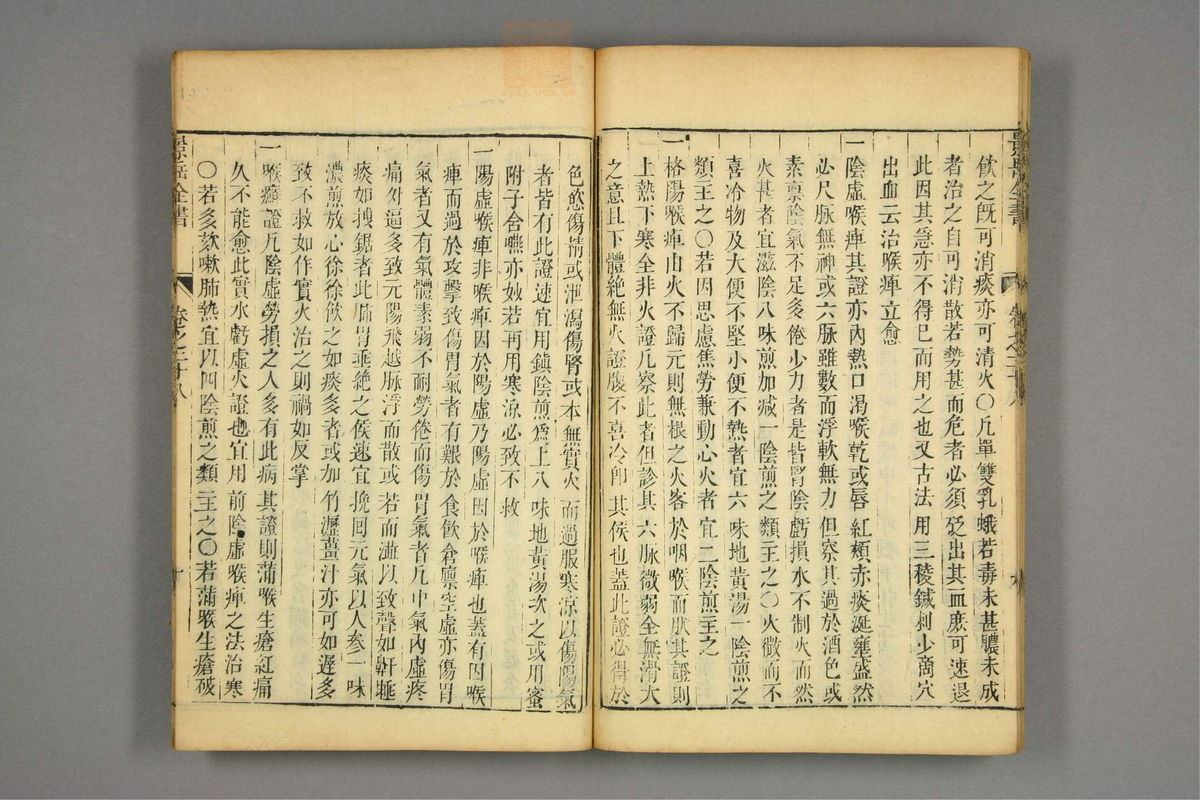 景岳全書 卷之二十八
飲之既可消痰亦可清火〇凡單雙乳蛾若毒未甚膿未成
者治之自可消散若勢甚而危者必須砭出其血庶可速退
此因其急亦不得已而用之也又古法用三稜鍼刺少商穴
出血云治喉痺立愈
一陰虛喉痺其證亦內熱口渴喉乾或唇紅頰赤痰涎壅盛然
必尺脉無神或六脉雖數而浮軟無力但察其過於酒色或
素禀陰氣不足多倦少力者是皆腎陰虧損水不制火而然
火甚者宜滋陰八味煎加減一陰煎之類主之〇火微而不
喜冷物及大便不堅小便不熱者宜六味地黃湯一陰煎之
類主之〇若因思慮焦勞兼動心火者宜二陰煎主之
一格陽喉痺由火不歸元則無根之火客於咽喉而然其證則
上熱下寒全非火證凡察此者但診其六脉微弱全無滑大
之意且下體絕無火證腹不喜冷卽其候也蓋此證必得於
色慾傷精或泄瀉傷腎或本無實火而過服寒涼以傷陽氣
者皆有此證速宜用鎮陰煎爲上八味地黃湯次之或用蜜
附子含嚥亦妙若再用寒涼必致不救
一陽虛喉痺非喉痺因於陽虛乃陽虛因於喉痺也蓋有因喉
痺而過於攻擊致傷胃氣者有艱於食飲倉廩空虛亦傷胃
氣者又有氣體素弱不耐勞倦而傷胃氣者凡中氣內虛疼
痛外逼多致元陽飛越脉浮而散或若而濇以致聲如鼾睡
痰如拽鋸者此肺胃垂絕之候速宜挽囘元氣以人參一味
濃煎放心徐徐飲之如痰多者或加竹瀝薑汁亦可如遲多
致不救如作實火治之則禍如反掌
一喉癬證凡陰虛勞損之人多有此病其證則滿喉生瘡紅痛
久不能愈此實水虧虛火證也宜用前陰虛喉痺之法治寒
〇若多欬嗽肺熱宜以四陰煎之類主之〇若滿喉生瘡破
景岳全書 卷之二十八 十